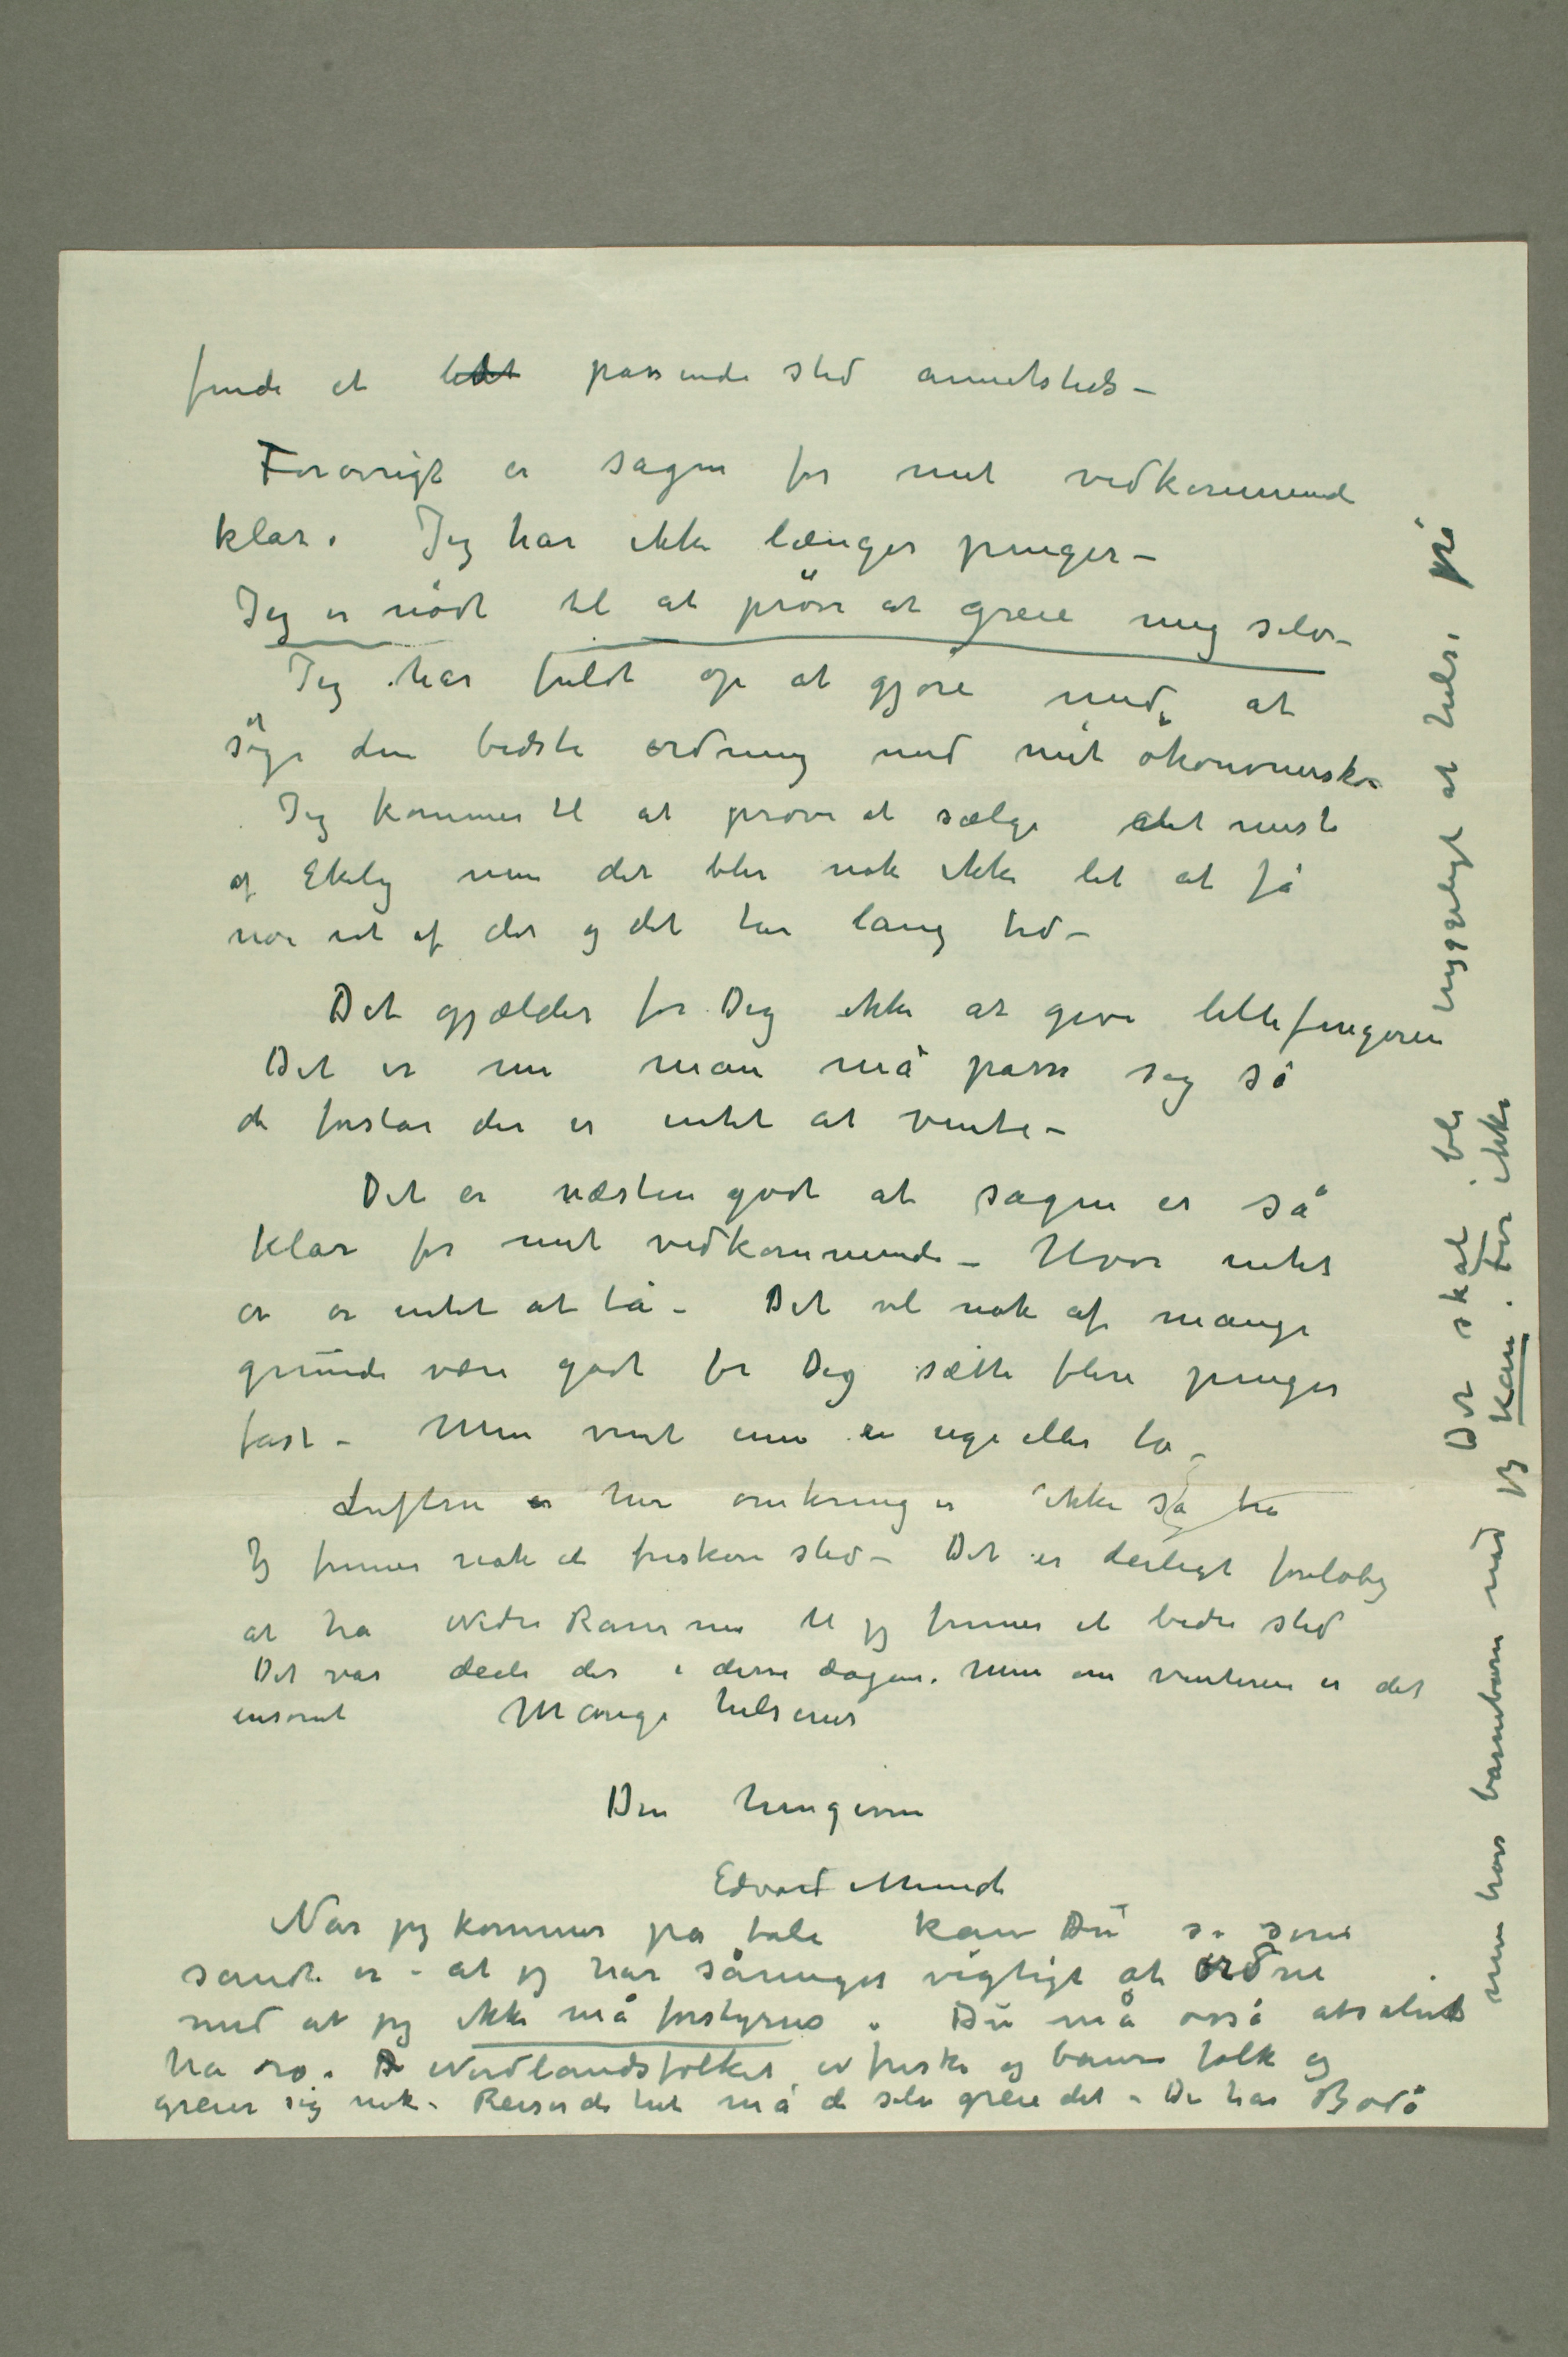 finde et passende sted annetsteds –
Forøvrigt er sagen for mit vedkommende
klar. Jeg har ikke længer penger –
Jeg er nödt til at pröve at greie mig selv –
Jeg har fuldt op at gjøre med at
söge den bedste ordning med mit økonomiske
Jeg kommer til at prøve at sælge det meste
af Ekely men det blir nok ikke let at få
noe ut af det og det tar lang tid –
Det gjælder for Dig ikke at give lillefingeren
Det er nu man må passe sig så
de forstår der er intet at vente –
Det er næsten godt at sagen er så
klar for mit vedkommende – Hvor intet
er er intet at ta – Det vil nok af mange
grunde være godt for Dig sætte flere penger
fast – Men vent ennu en uge eller to –
Luften her omkring er ikke så bra
Jeg finner nok et friskere sted – Det er deiligt foreløbig
at ha Nedre Ramme til jeg finner et bedre sted
Det var deili der i disse dagene. Men om vinteren er det
ensomt Mange hilsener
Din hengivne
Edvard Munch
Når jeg kommer på tale kan Du si som
sandt er – at jeg har så meget vigtigt at ordne
med at jeg ikke må forstyrres. Du må også absolut
ha ro. Nordlandsfolket er friske og bra folk og
greier sig nok. Reisende hit må de selv greie det – De har Bodö
Det skal bli hyggeligt at hilse på
min brors barnebarn når jeg kan. Før ikke